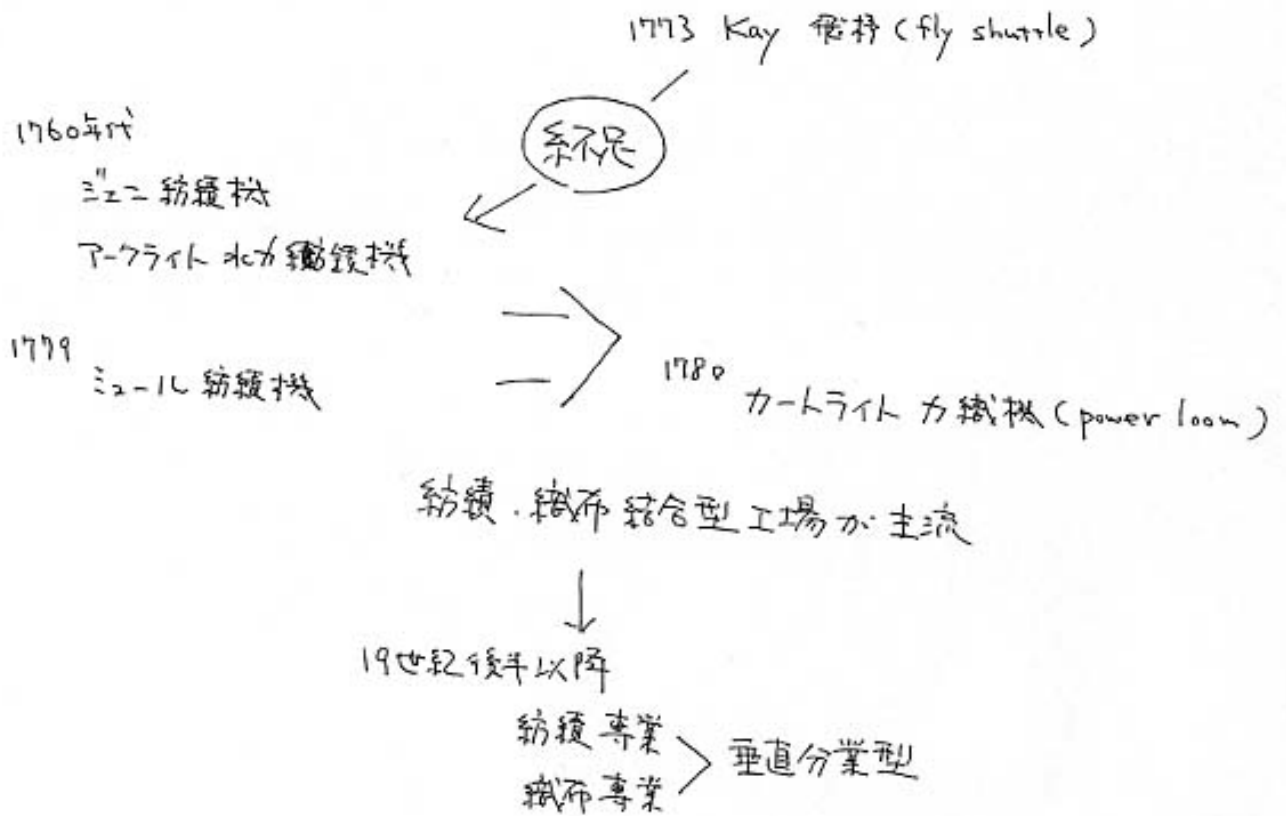 1773 Kay 飛杼 (fly shuttle)
糸不足
1760年代
ジェニ紡績機
アークライト 水力紡績機
1779
ミュール紡績機
1780
カートライト 力織機 (power loom)
紡績・織布 結合型工場が主流
19世紀後半以降
紡績専業
織布専業
垂直分業型